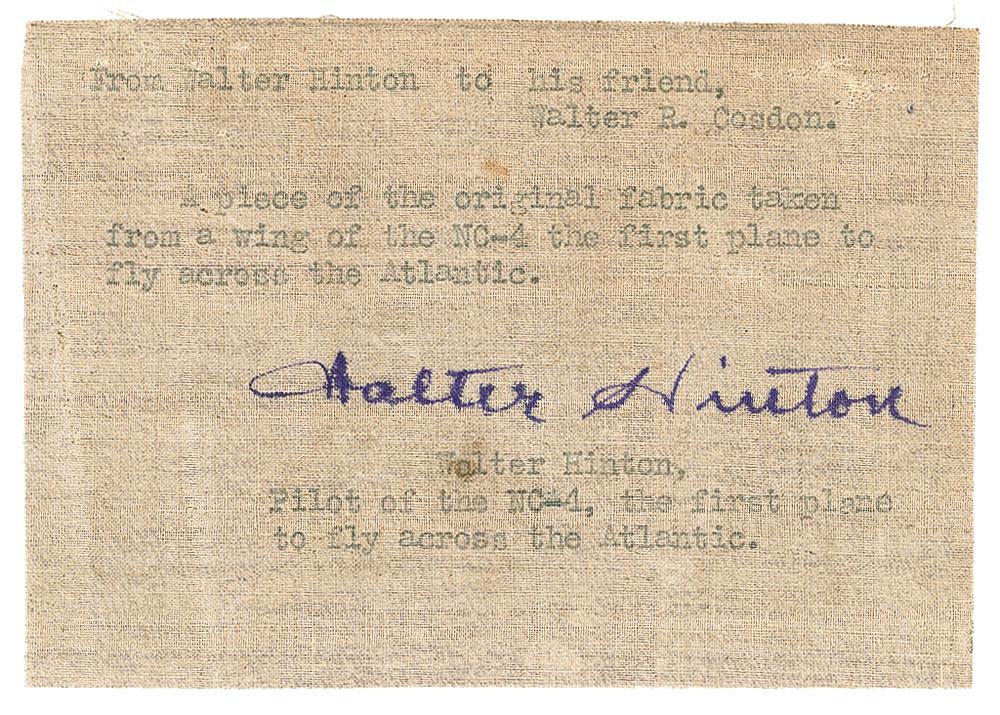 From Walter Hinton to his friend,
Walter R. Cosdon.
A piece of the original fabric taken
from a wing of the NC-4 the first plane to
fly across the Atlantic.
Walter Hinton
Walter Hinton,
Pilot of the NC-4, the first plane
to fly across the Atlantic.